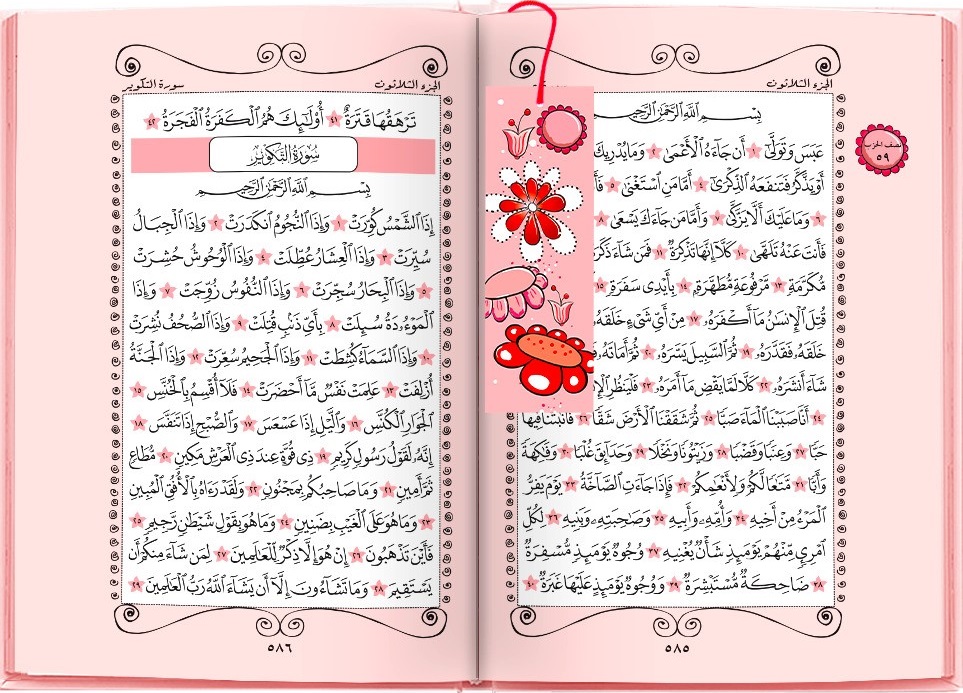 الجزء الثلاثون
بِسْمِ اللَّهِ الرَّحْمَٰنِ الرَّحِيمِ
عَبَسَ وَتَوَلَّىٰٓ ١ أَن جَآءَهُ ٱلْأَعْمَىٰ ٢ وَمَا يُدْرِيكَ
نصف الحزب
٥٩
أَوْ يَذَّكَّرُ فَتَنفَعَهُ ٱلذِّكْرَىٰٓ ٤ أَمَّا مَنِ ٱسْتَغْنَىٰ ٥
٦ وَمَا عَلَيْكَ أَلَّا يَزَّكَّىٰ ٧ وَأَمَّا مَن جَآءَكَ يَسْعَىٰ ٨
فَأَنتَ عَنْهُ تَلَهَّىٰ ١٠ كَلَّآ إِنَّهَا تَذْكِرَةٌ ١١ فَمَن شَآءَ ذَكَرَهُ
مُّكَرَّمَةٍ ١٣ مَّرْفُوعَةٍ مُّطَهَّرَةٍ ١٤ بِأَيْدِى سَفَرَةٍ ١٥
قُتِلَ ٱلْإِنسَٰنُ مَآ أَكْفَرَهُۥ ١٧ مِنْ أَىِّ شَىْءٍ خَلَقَهُۥ
خَلَقَهُۥ فَقَدَّرَهُۥ ١٩ ثُمَّ ٱلسَّبِيلَ يَسَّرَهُۥ ٢٠ ثُمَّ أَمَاتَهُۥ
شَآءَ أَنشَرَهُۥ ٢٢ كَلَّا لَمَّا يَقْضِ مَآ أَمَرَهُۥ ٢٣ فَلْيَنظُرِ
٢٤ أَنَّا صَبَبْنَا ٱلْمَآءَ صَبًّا ٢٥ ثُمَّ شَقَقْنَا ٱلْأَرْضَ شَقًّا ٢٦ فَأَنۢبَتْنَا فِيهَا
حَبًّا ٢٧ وَعِنَبًا وَقَضْبًا ٢٨ وَزَيْتُونًا وَنَخْلًا ٢٩ وَحَدَآئِقَ غُلْبًا ٣٠ وَفَٰكِهَةً
وَأَبًّا ٣١ مَّتَٰعًا لَّكُمْ وَلِأَنْعَٰمِكُمْ ٣٢ فَإِذَا جَآءَتِ ٱلصَّآخَّةُ ٣٣ يَوْمَ يَفِرُّ
ٱلْمَرْءُ مِنْ أَخِيهِ ٣٤ وَأُمِّهِۦ وَأَبِيهِ ٣٥ وَصَٰحِبَتِهِۦ وَبَنِيهِ ٣٦ لِكُلِّ
ٱمْرِئٍ مِّنْهُمْ يَوْمَئِذٍ شَأْنٌ يُغْنِيهِ ٣٧ وُجُوهٌ يَوْمَئِذٍ مُّسْفِرَةٌ
٣٨ ضَاحِكَةٌ مُّسْتَبْشِرَةٌ ٣٩ وَوُجُوهٌ يَوْمَئِذٍ عَلَيْهَا غَبَرَةٌ ٤٠
٥٨٥
الجزء الثلاثون سورة التكوير
تَرْهَقُهَا قَتَرَةٌ ٤١ أُو۟لَٰٓئِكَ هُمُ ٱلْكَفَرَةُ ٱلْفَجَرَةُ ٤٢
سُورَةُ التَّكْوِيرِ
بِسْمِ اللَّهِ الرَّحْمَٰنِ الرَّحِيمِ
إِذَا ٱلشَّمْسُ كُوِّرَتْ ١ وَإِذَا ٱلنُّجُومُ ٱنكَدَرَتْ ٢ وَإِذَا ٱلْجِبَالُ
سُيِّرَتْ ٣ وَإِذَا ٱلْعِشَارُ عُطِّلَتْ ٤ وَإِذَا ٱلْوُحُوشُ حُشِرَتْ
٥ وَإِذَا ٱلْبِحَارُ سُجِّرَتْ ٦ وَإِذَا ٱلنُّفُوسُ زُوِّجَتْ ٧ وَإِذَا
ٱلْمَوْءُۥدَةُ سُئِلَتْ ٨ بِأَىِّ ذَنۢبٍ قُتِلَتْ ٩ وَإِذَا ٱلصُّحُفُ نُشِرَتْ
١٠ وَإِذَا ٱلسَّمَآءُ كُشِطَتْ ١١ وَإِذَا ٱلْجَحِيمُ سُعِّرَتْ ١٢ وَإِذَا ٱلْجَنَّةُ
أُزْلِفَتْ ١٣ عَلِمَتْ نَفْسٌ مَّآ أَحْضَرَتْ ١٤ فَلَآ أُقْسِمُ بِٱلْخُنَّسِ ١٥
ٱلْجَوَارِ ٱلْكُنَّسِ ١٦ وَٱلَّيْلِ إِذَا عَسْعَسَ ١٧ وَٱلصُّبْحِ إِذَا تَنَفَّسَ ١٨
إِنَّهُۥ لَقَوْلُ رَسُولٍ كَرِيمٍ ١٩ ذِى قُوَّةٍ عِندَ ذِى ٱلْعَرْشِ مَكِينٍ ٢٠ مُّطَاعٍ
ثَمَّ أَمِينٍ ٢١ وَمَا صَاحِبُكُم بِمَجْنُونٍ ٢٢ وَلَقَدْ رَءَاهُ بِٱلْأُفُقِ ٱلْمُبِينِ
٢٣ وَمَا هُوَ عَلَى ٱلْغَيْبِ بِضَنِينٍ ٢٤ وَمَا هُوَ بِقَوْلِ شَيْطَٰنٍ رَّجِيمٍ ٢٥
فَأَيْنَ تَذْهَبُونَ ٢٦ إِنْ هُوَ إِلَّا ذِكْرٌ لِّلْعَٰلَمِينَ ٢٧ لِمَن شَآءَ مِنكُمْ أَن
يَسْتَقِيمَ ٢٨ وَمَا تَشَآءُونَ إِلَّآ أَن يَشَآءَ ٱللَّهُ رَبُّ ٱلْعَٰلَمِينَ ٢٩
٥٨٦